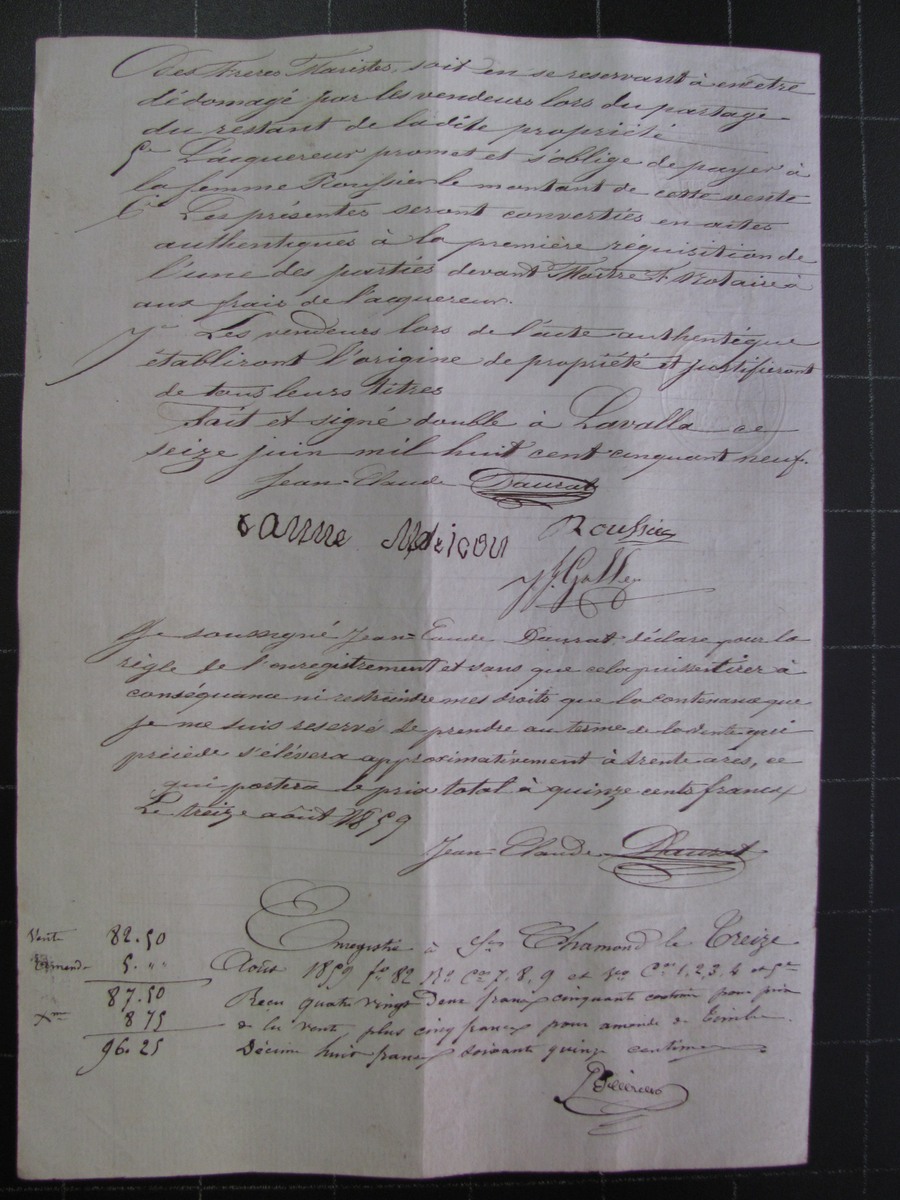 des Freres Maristes, soit en se reservant à en être
dédomagé par les vendeurs lors du partage
du restant de ladite propriété
5e L'acquereur promet et s'oblige de payer à
la femme Roussier le montant de cette vente
6e Les présentes seront converties en actes
authentiques à la première réquisition de
l'une des parties devant Maitre Notaire à
aux frais de l'acquereur.
7e Les vendeurs lors de l'acte authentique
établiront l'origine de propriété et justifieront
de tous leurs titres
Fait et signé double à Lavalla ce
seize juin mil huit cent cinquant neuf.
Jean-Claude Daurat
Roussier
Je soussigné Jean-Caude Daurat déclare pour la
règle de l'enregistrement et sans que cela puisse tirer à
conséquance ni restreindre mes droits que la contenance que
je me suis reservé de prendre au terme de la vente qui
précède s'élèvera approximativement à trente ares, ce
qui portera le prix total à quinze cents francs
Le treize août 1859
Jean-Claude Daurat
Enregistré à St Chamond le Treize
Août 1859 fo 82 Ro Ces 7, 8, 9 et Vo Ces 1, 2, 3, 4 et 5
Recu quatre vingt deux francs cinquante centimes pour prix
de la vente, plus cinq francs pour amende de Timbre
Décime huit francs soixante quinze centimes
Vente 82.50
5. " "
87.50
Xme 8 75
96.25